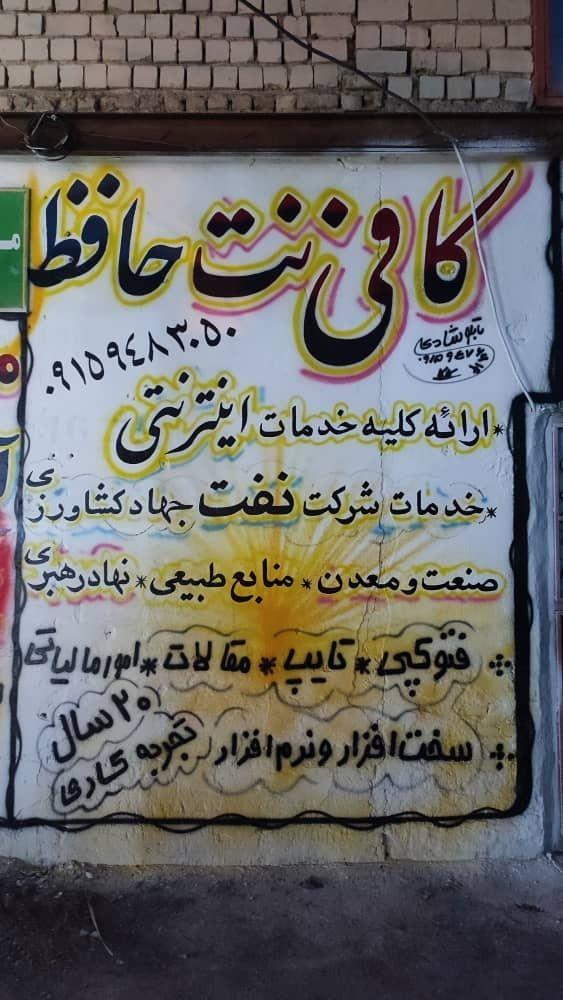 کافی نت حافظ
۰۹۱۵۹۴۸۳۰۵۰
تابلو شادی
* ارائه کلیه خدمات اینترنتی
* خدمات شرکت نفت جهاد کشاورزی
صنعت و معدن * منابع طبیعی * نهاد رهبری
فتوکپی * تایپ * مقالات * امور مالیاتی
سخت افزار و نرم افزار
۲۰ سال
تجربه کاری